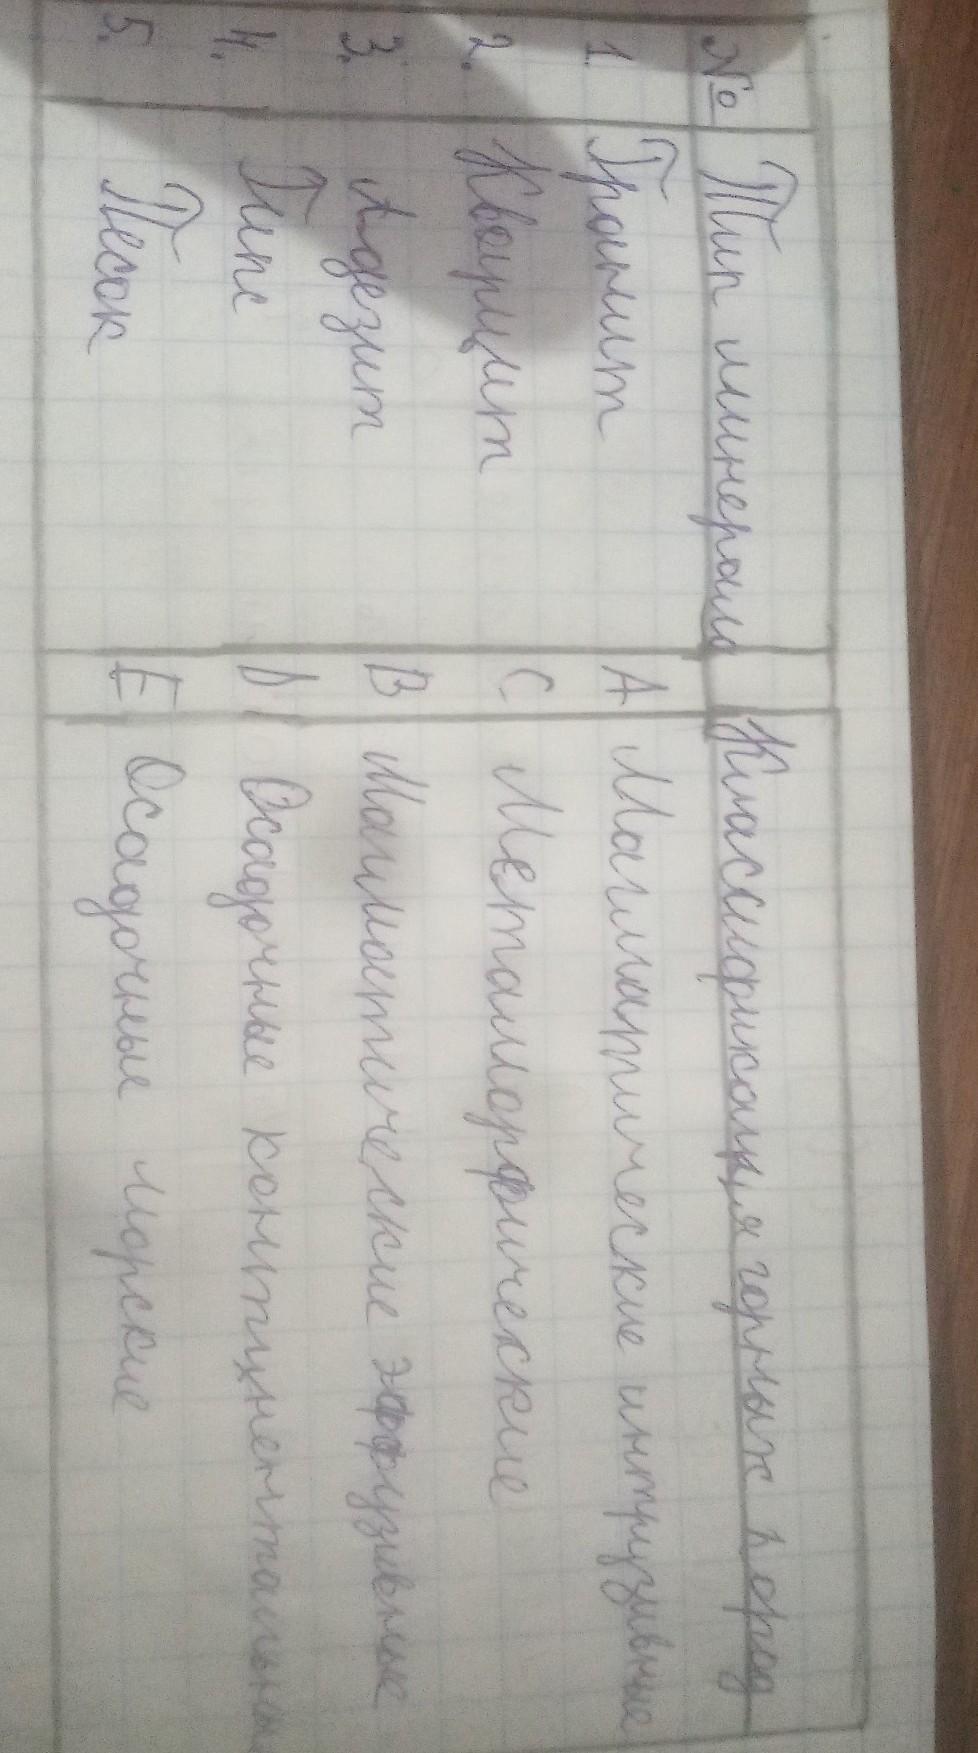 № Тип минерала Классификация горных пород
1. Гранит А Магматические интрузивные
2. Кварцит С Метаморфические
3. Адезит В Магматические эффузивные
4. Гипс D Осадочные континентальны
5. Песок Е Осадочные морские